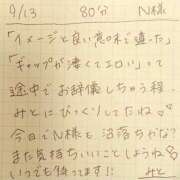 9/13 80分 N様
「イメージと良い意味で違った」
「ギャップが凄くてエロい」って
途中でお辞儀しちゃう程、
みとにびっくりしてたね♡
今日でN様も沼落ちかな?
また気持ちいいことしようね
いつでも待ってます!! みと